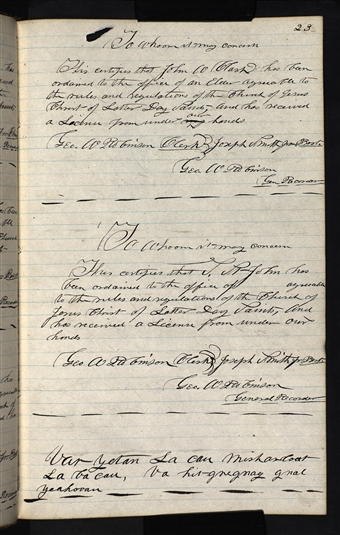 23
To Whom it may concern
This certifies that John W Clark has been
ordained to the office of an Elder agreeable to
the rules and regulation of the Church of Jesus
Christ of Latter Day Saints, and has received
a License from under our hands
Geo. W Robinson Clerk Joseph Smith Jr Prest
Geo. W Robinson
Gen. Recorder
To Whom it may concern
This certifies that S. St John has
been ordained to the office of agreeable
to the rules and regulations of the Church of
Jesus Christ of Latter Day Saints, and
has received a License from under our
hands
Geo W Robinson Clerk Joseph Smith Jr Prest
Geo. W Robinson
General Recorder
Var yetan La cau
La va cau, va